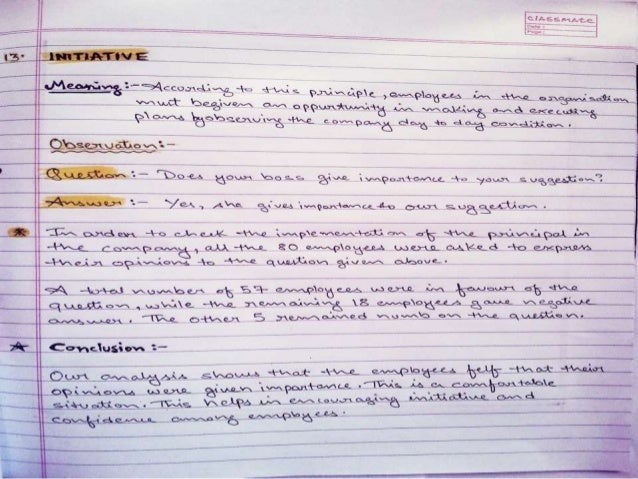 classmate
Date :
Page :
13. INITIATIVE
Meaning :- According to this principle, employees in the organisation
must begiven an oppurtunity in making and executing
plans byobserving the company day to day condition.
Observation :-
Question :- Does your boss give importance to your suggestion?
Answer :- Yes, she gives importance to our suggestion.
* In order to check the implementation of the principal in
the company, all the 80 employees were asked to express
their opinions to the question given above.
A total number of 57 employees were in favour of the
question, while the remaining 18 employees gave negative
answer. The other 5 remained numb on the question.
* Conclusion :-
Our analysis shows that the employees felt that their
opinions were given importance. This is a comfortable
situation. This helps in encouraging initiative and
confidence among employees.